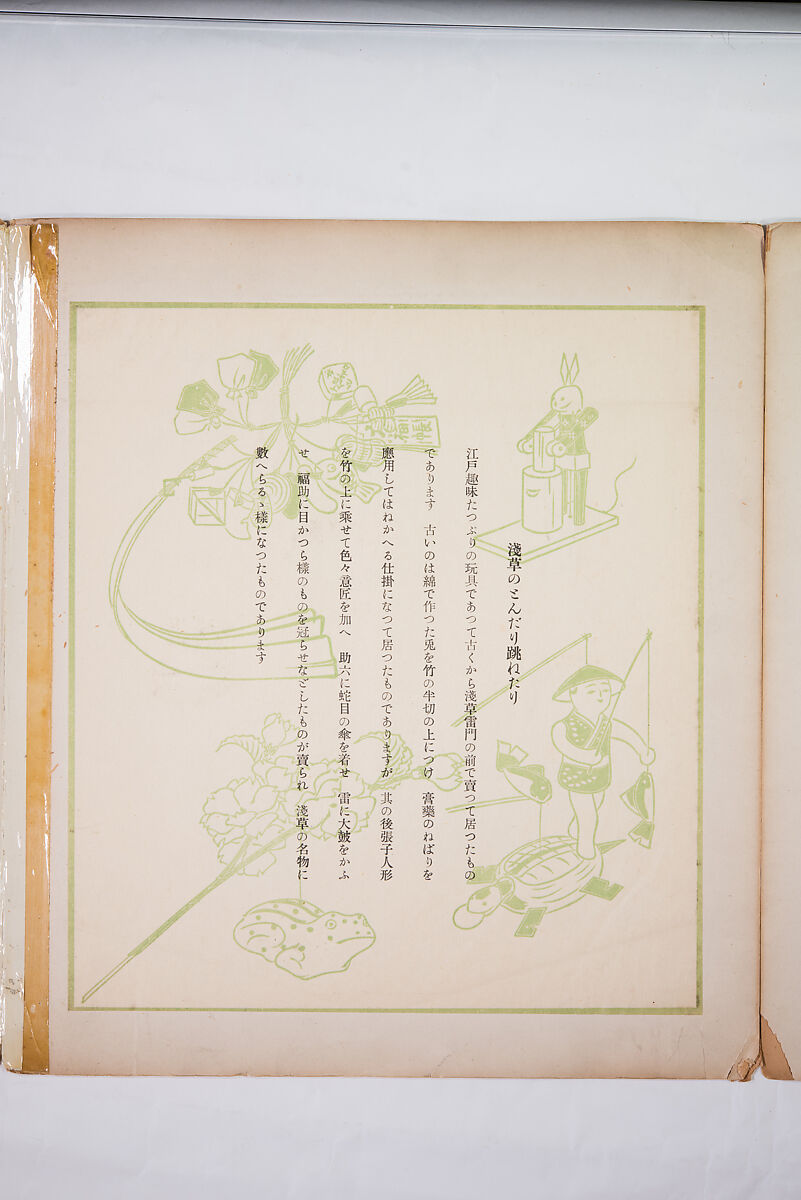 淺草のとんだり跳ねたり
江戸趣味たつぷりの玩具であつて古くから淺草雷門の前で賣つて居つたもの
であります　古いのは綿で作つた兎を竹の半切の上につけ　膏藥のねばりを
應用してはねかへる仕掛になつて居つたものでありますが　其の後張子人形
を竹の上に乘せて色々意匠を加へ　助六に蛇目の傘を着せ　雷に大皷をかふ
せ　福助に目かつら樣のものを冠らせなどしたものが賣られ　淺草の名物に
數へらるゝ樣になつたものであります